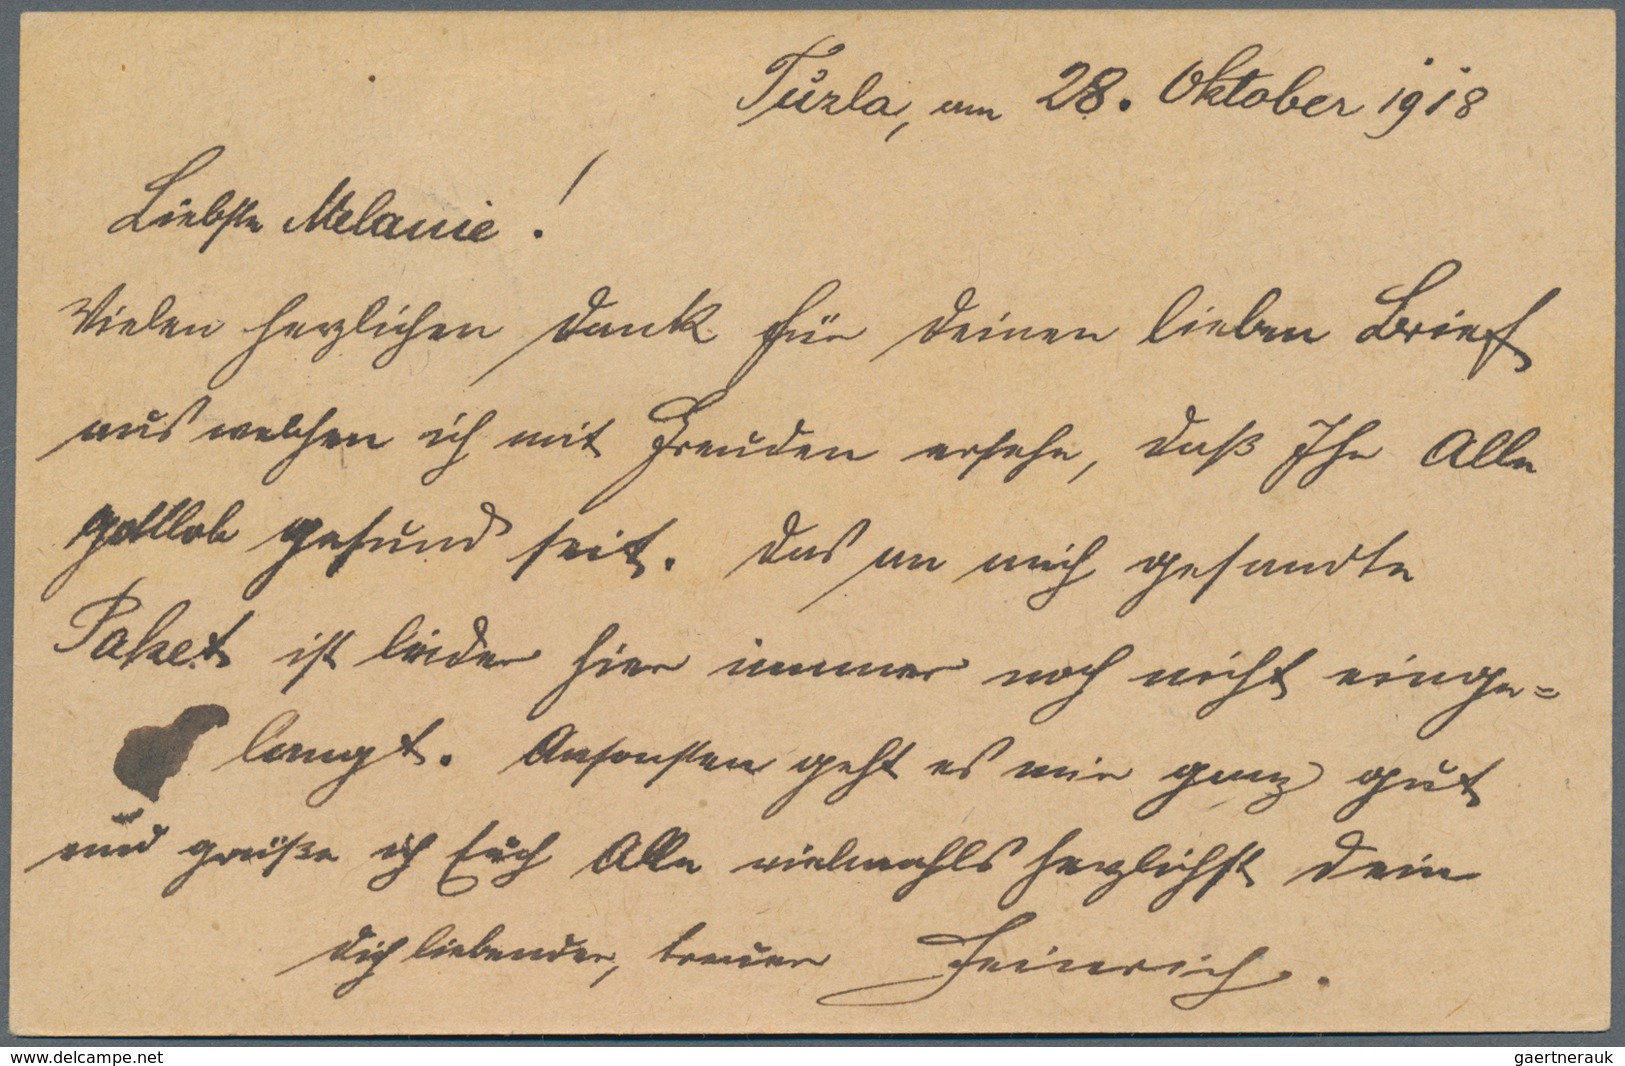 Tuzla, am 28. Oktober 1918
Liebste Melanie!
Vielen herzlichen Dank für Deinen lieben Brief
aus welchen ich mit Freuden ersehe, daß Ihr Alle
gottlob gesund seit. Das an mich gesandte
Paket ist leider hier immer noch nicht einge=
langt. Ansonsten geht es mir ganz gut
und grüße ich Euch Alle vielmahls herzlichst Dein
Dich liebender, treuer Heinrich.
www.delcampe.net
gaertnerauk